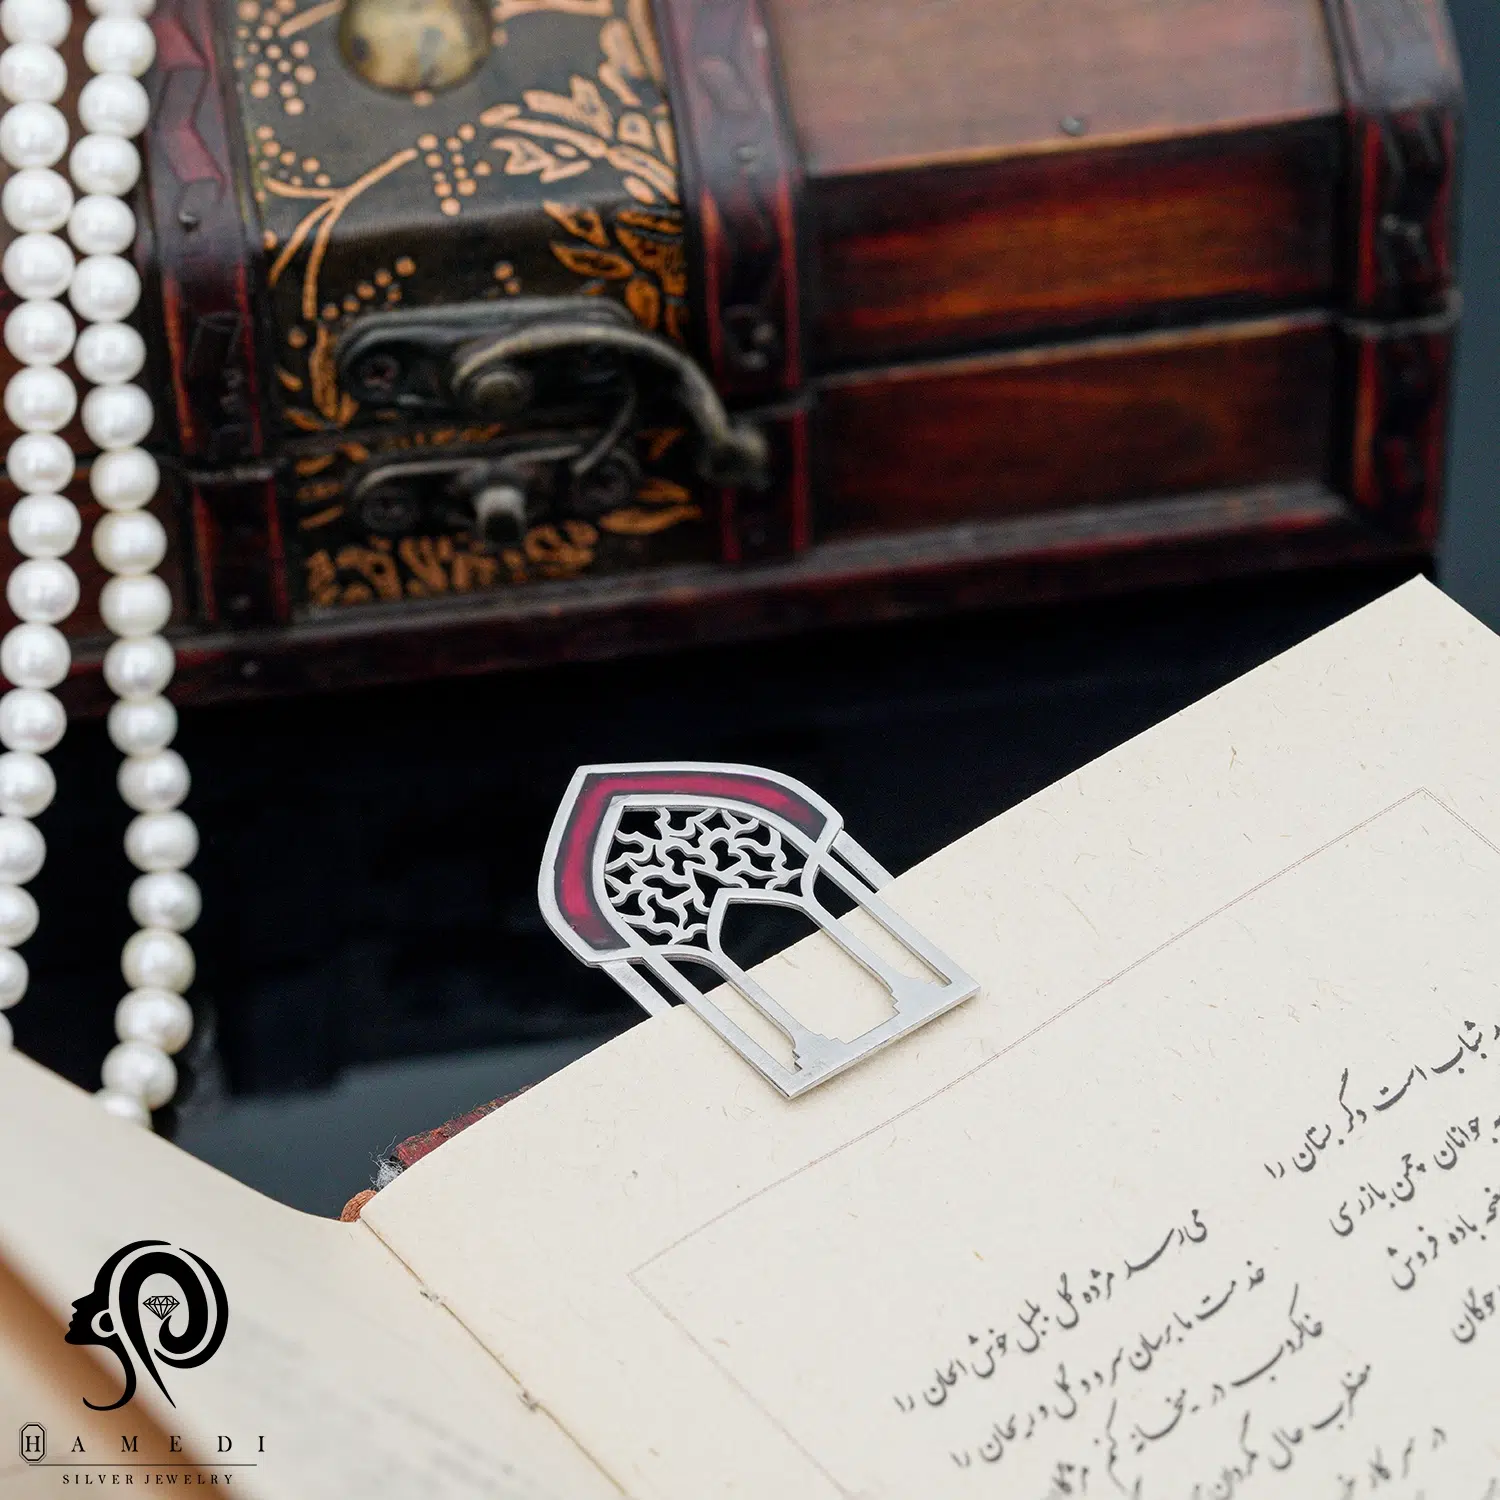 شباب است دگر بستان را
می‌رسد مژده گل بلبل خوش الحان را
جوانان چمن بازرسی
خدمت ما برسان سرو و گل و ریحان را
باده فروش
خاکروب در میخانه کنم مژگان
چوگان
مضطرب حال مگردان
در سر کار
HAMEDI
SILVER JEWELRY